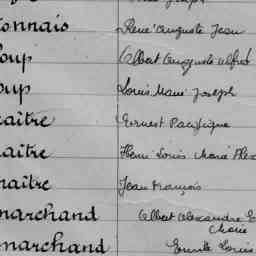 onnais René Auguste Jean
oup Albert Auguste Alfred
oup Louis Marie Joseph
aître Ernest Pacifique
aître Henri Louis Marie Alex
aître Jean François
marchand Albert Alexandre E
Marie
marchand Emile Louis